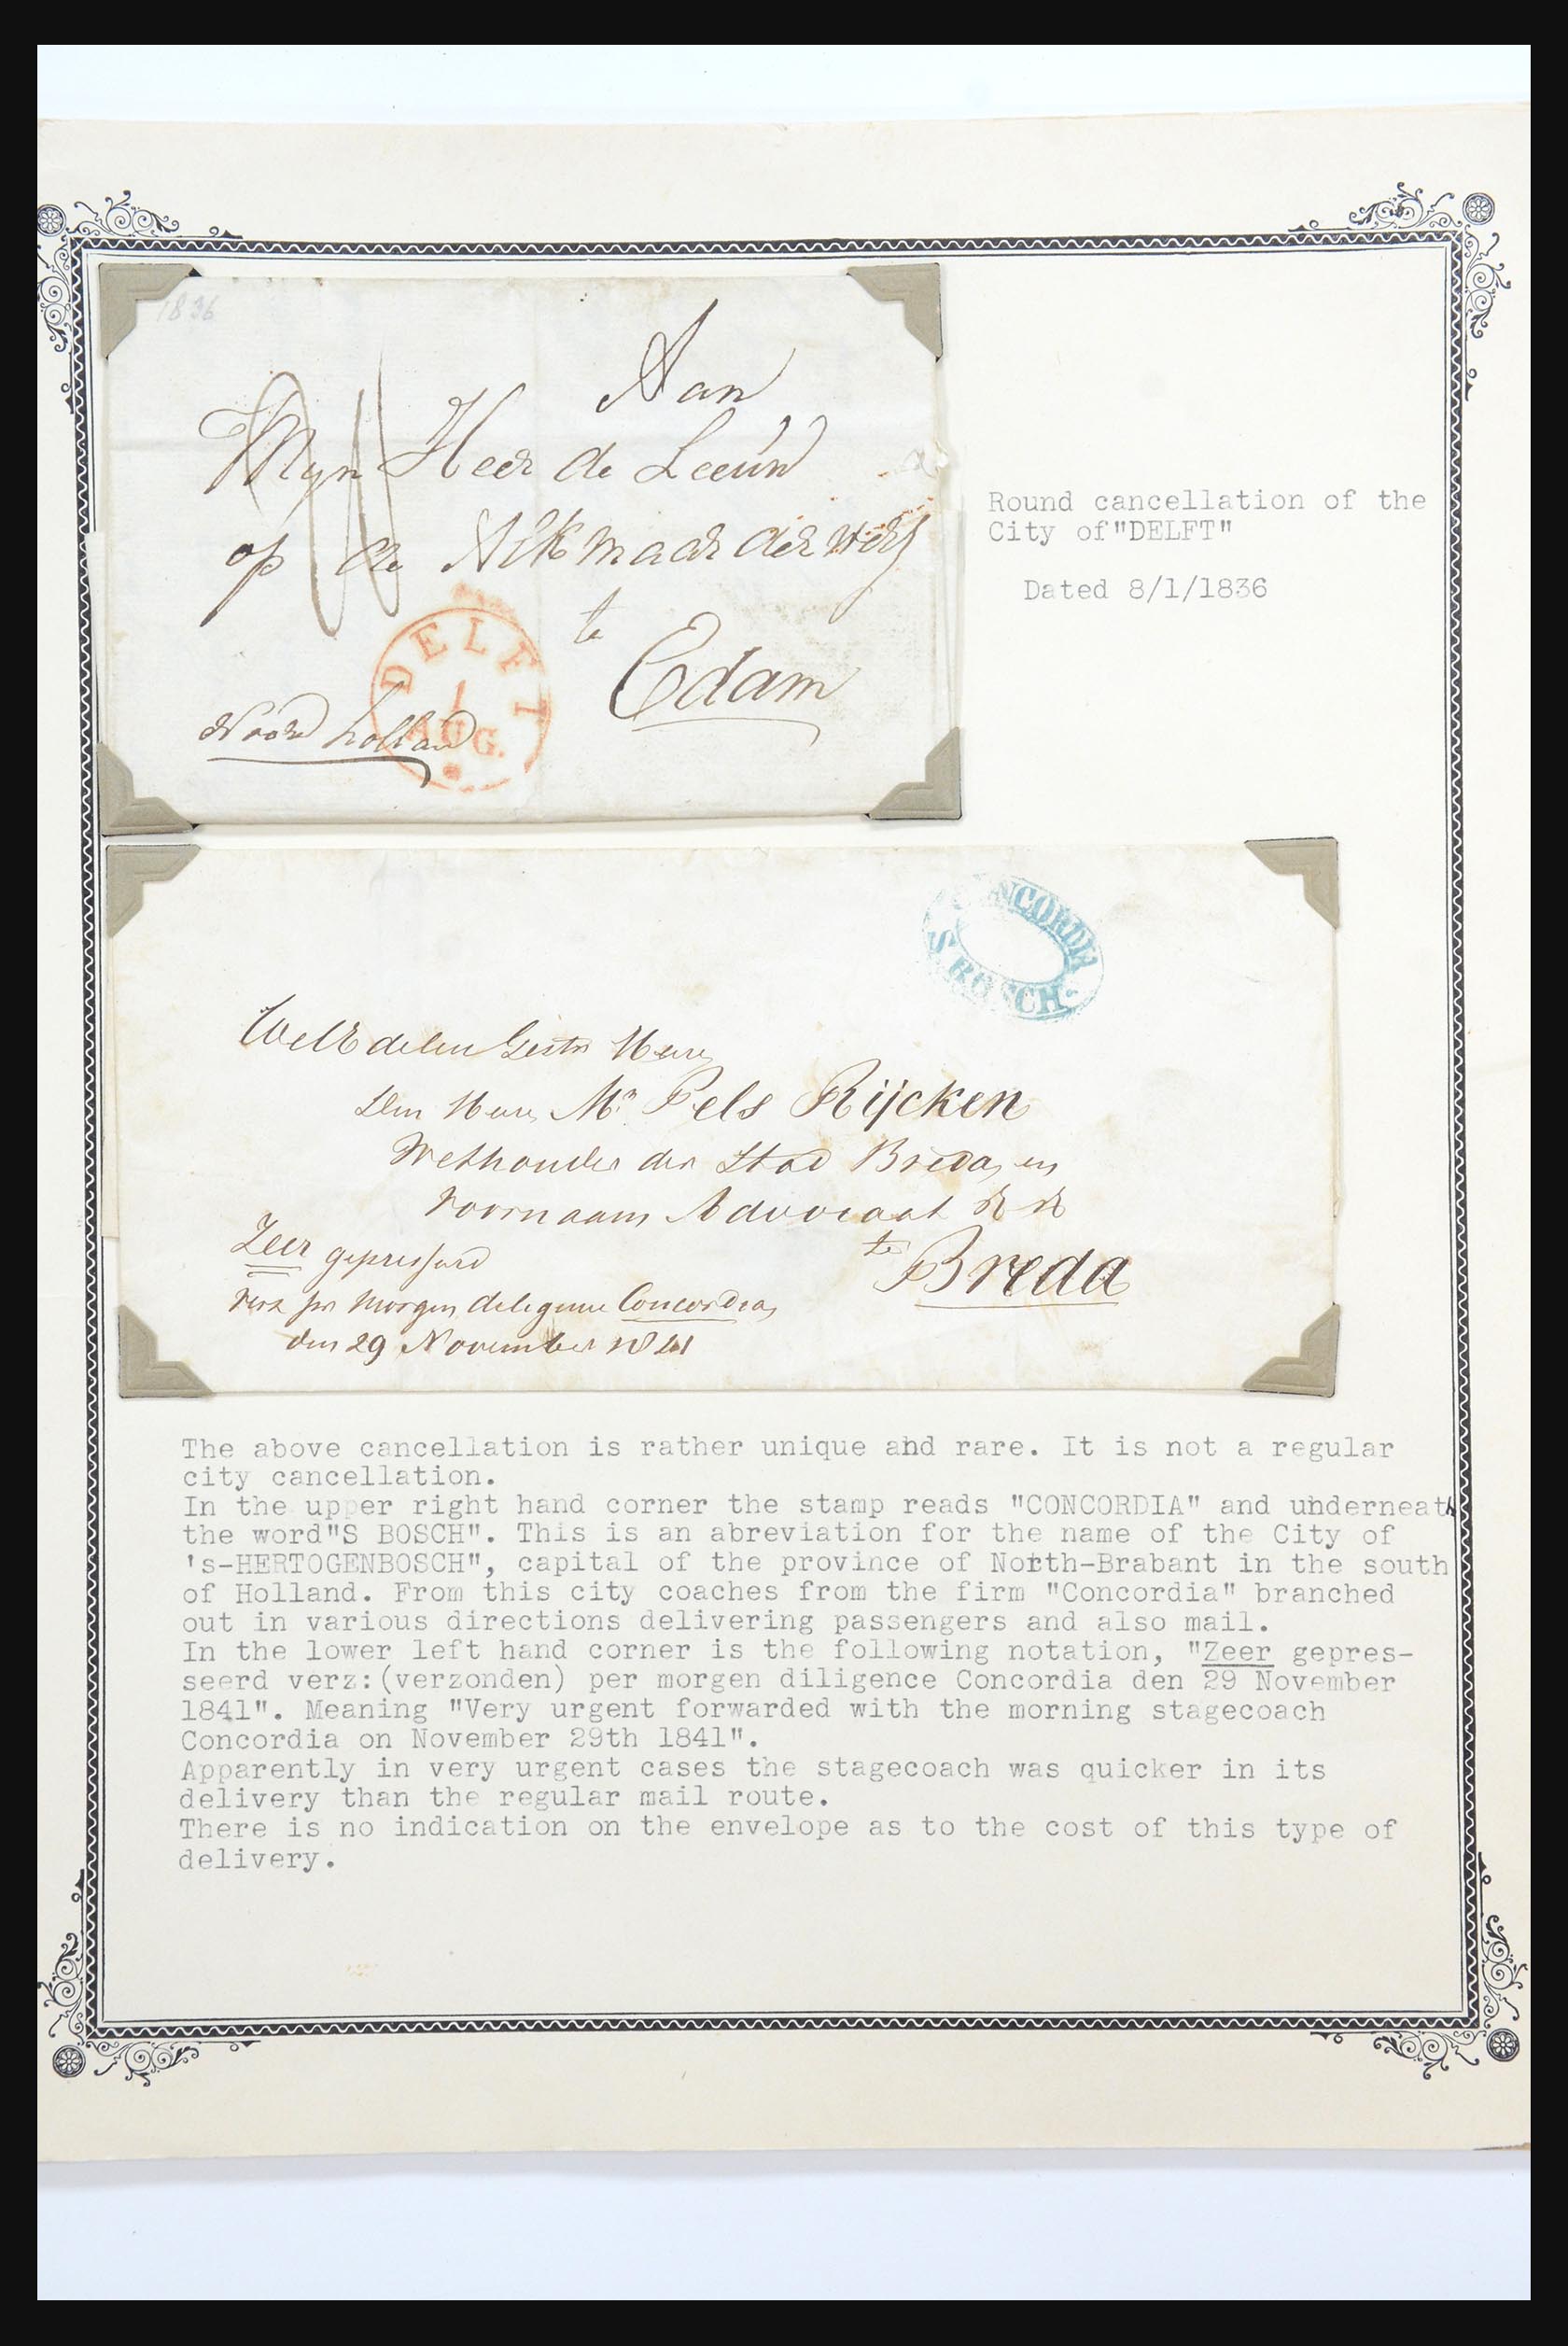 1836
Aan
Mijn Heer de Leeuw
op de Alkmaarderwerf
te
Edam
Noord holland
DELFT
1
AUG.
Round cancellation of the
City of"DELFT"
Dated 8/1/1836
CONCORDIA
S BOSCH
WelEdelen Gestr Heere
Den Heere Mr Pels Rijcken
Wethouder der Stad Breda, en
voornaam Advocaat & &
te Breda
Zeer gepresseerd
verz per morgen deligence Concordia,
den 29 November 1841
The above cancellation is rather unique ahd rare. It is not a regular
city cancellation.
In the upper right hand corner the stamp reads "CONCORDIA" and uhderneath
the word"S BOSCH". This is an abreviation for the name of the City of
's-HERTOGENBOSCH", capital of the province of North-Brabant in the south
of Holland. From this city coaches from the firm "Concordia" branched
out in various directions delivering passengers and also mail.
In the lower left hand corner is the following notation, "Zeer gepres-
seerd verz:(verzonden) per morgen diligence Concordia den 29 November
1841". Meaning "Very urgent forwarded with the morning stagecoach
Concordia on November 29th 1841".
Apparently in very urgent cases the stagecoach was quicker in its
delivery than the regular mail route.
There is no indication on the envelope as to the cost of this type of
delivery.